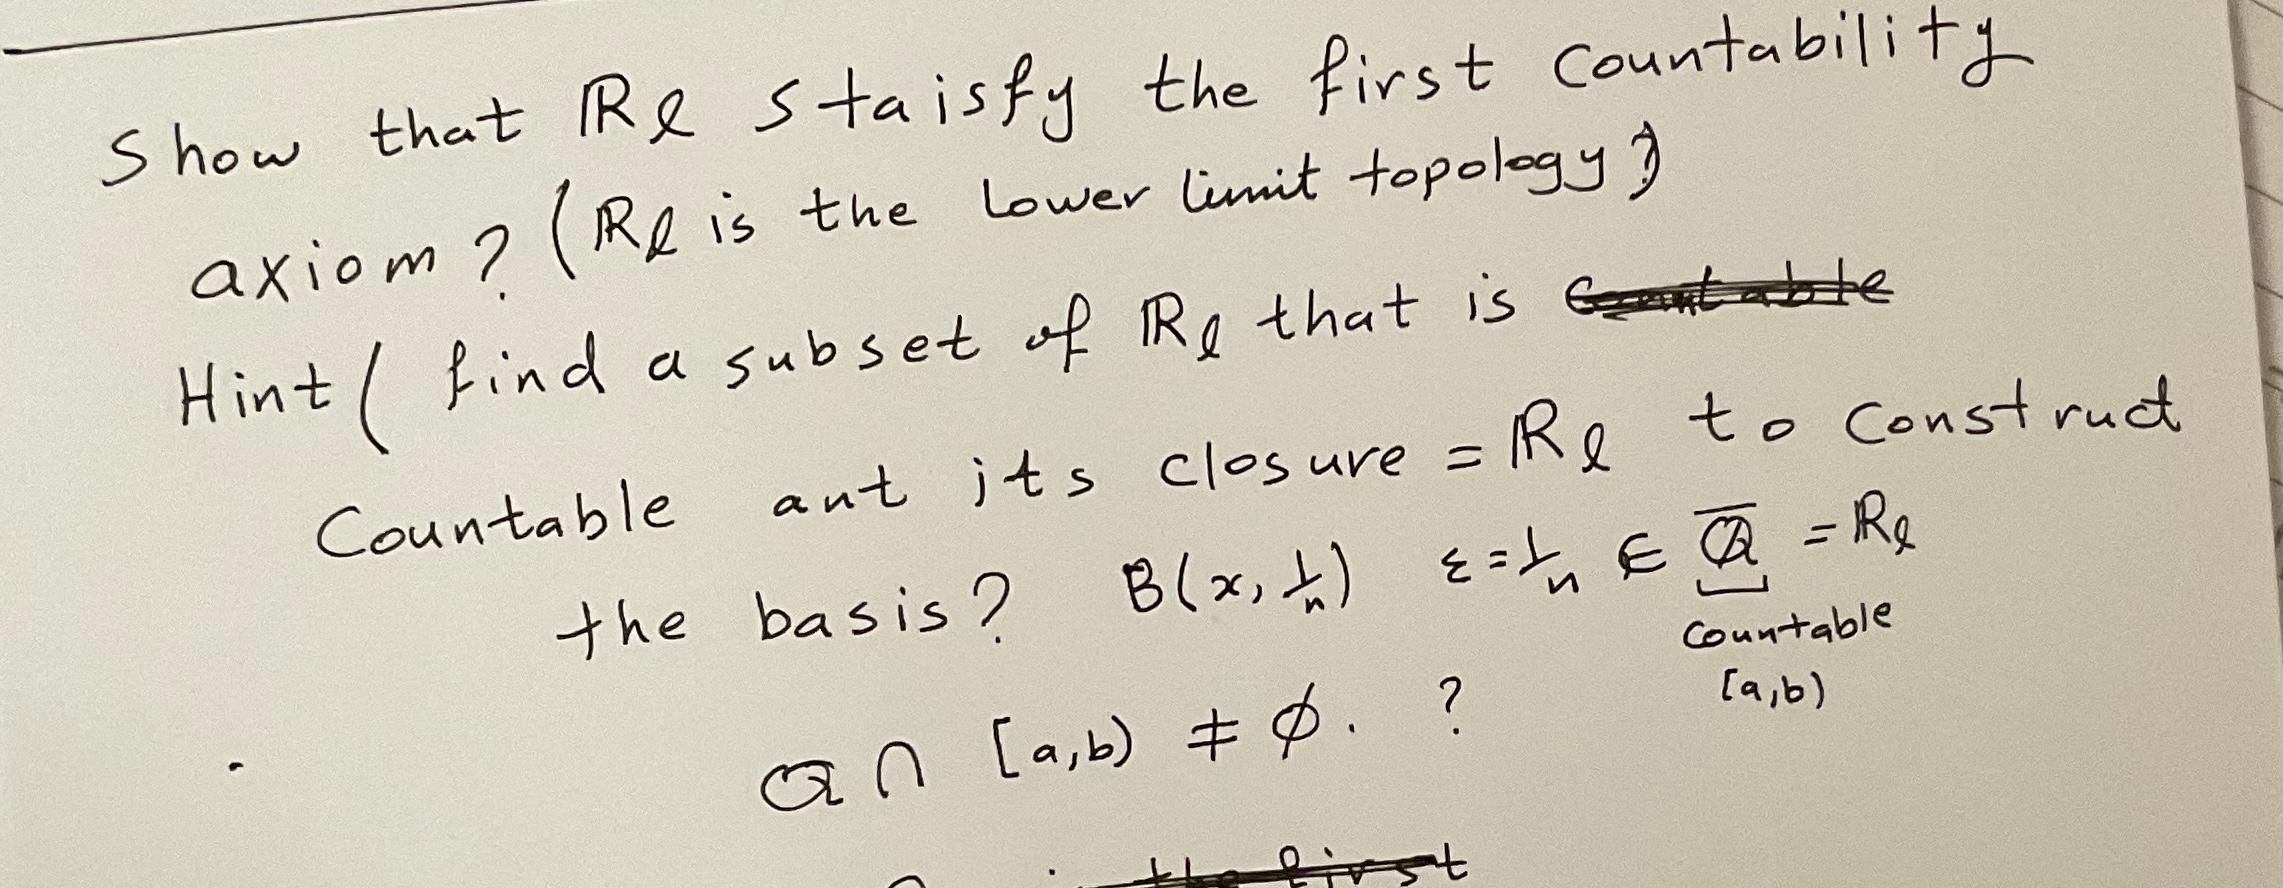 Show that ℝℓ staisfy the first countability
axiom? (ℝℓ is the lower limit topology)
Hint ( find a subset of ℝℓ that is countable
Countable ant its closure = ℝℓ to construct
the basis? B(x, 1/n) ε = 1/n ∈ ℚ̅ = ℝℓ
countable
[a,b)
ℚ ∩ [a,b) ≠ ∅. ?
the first